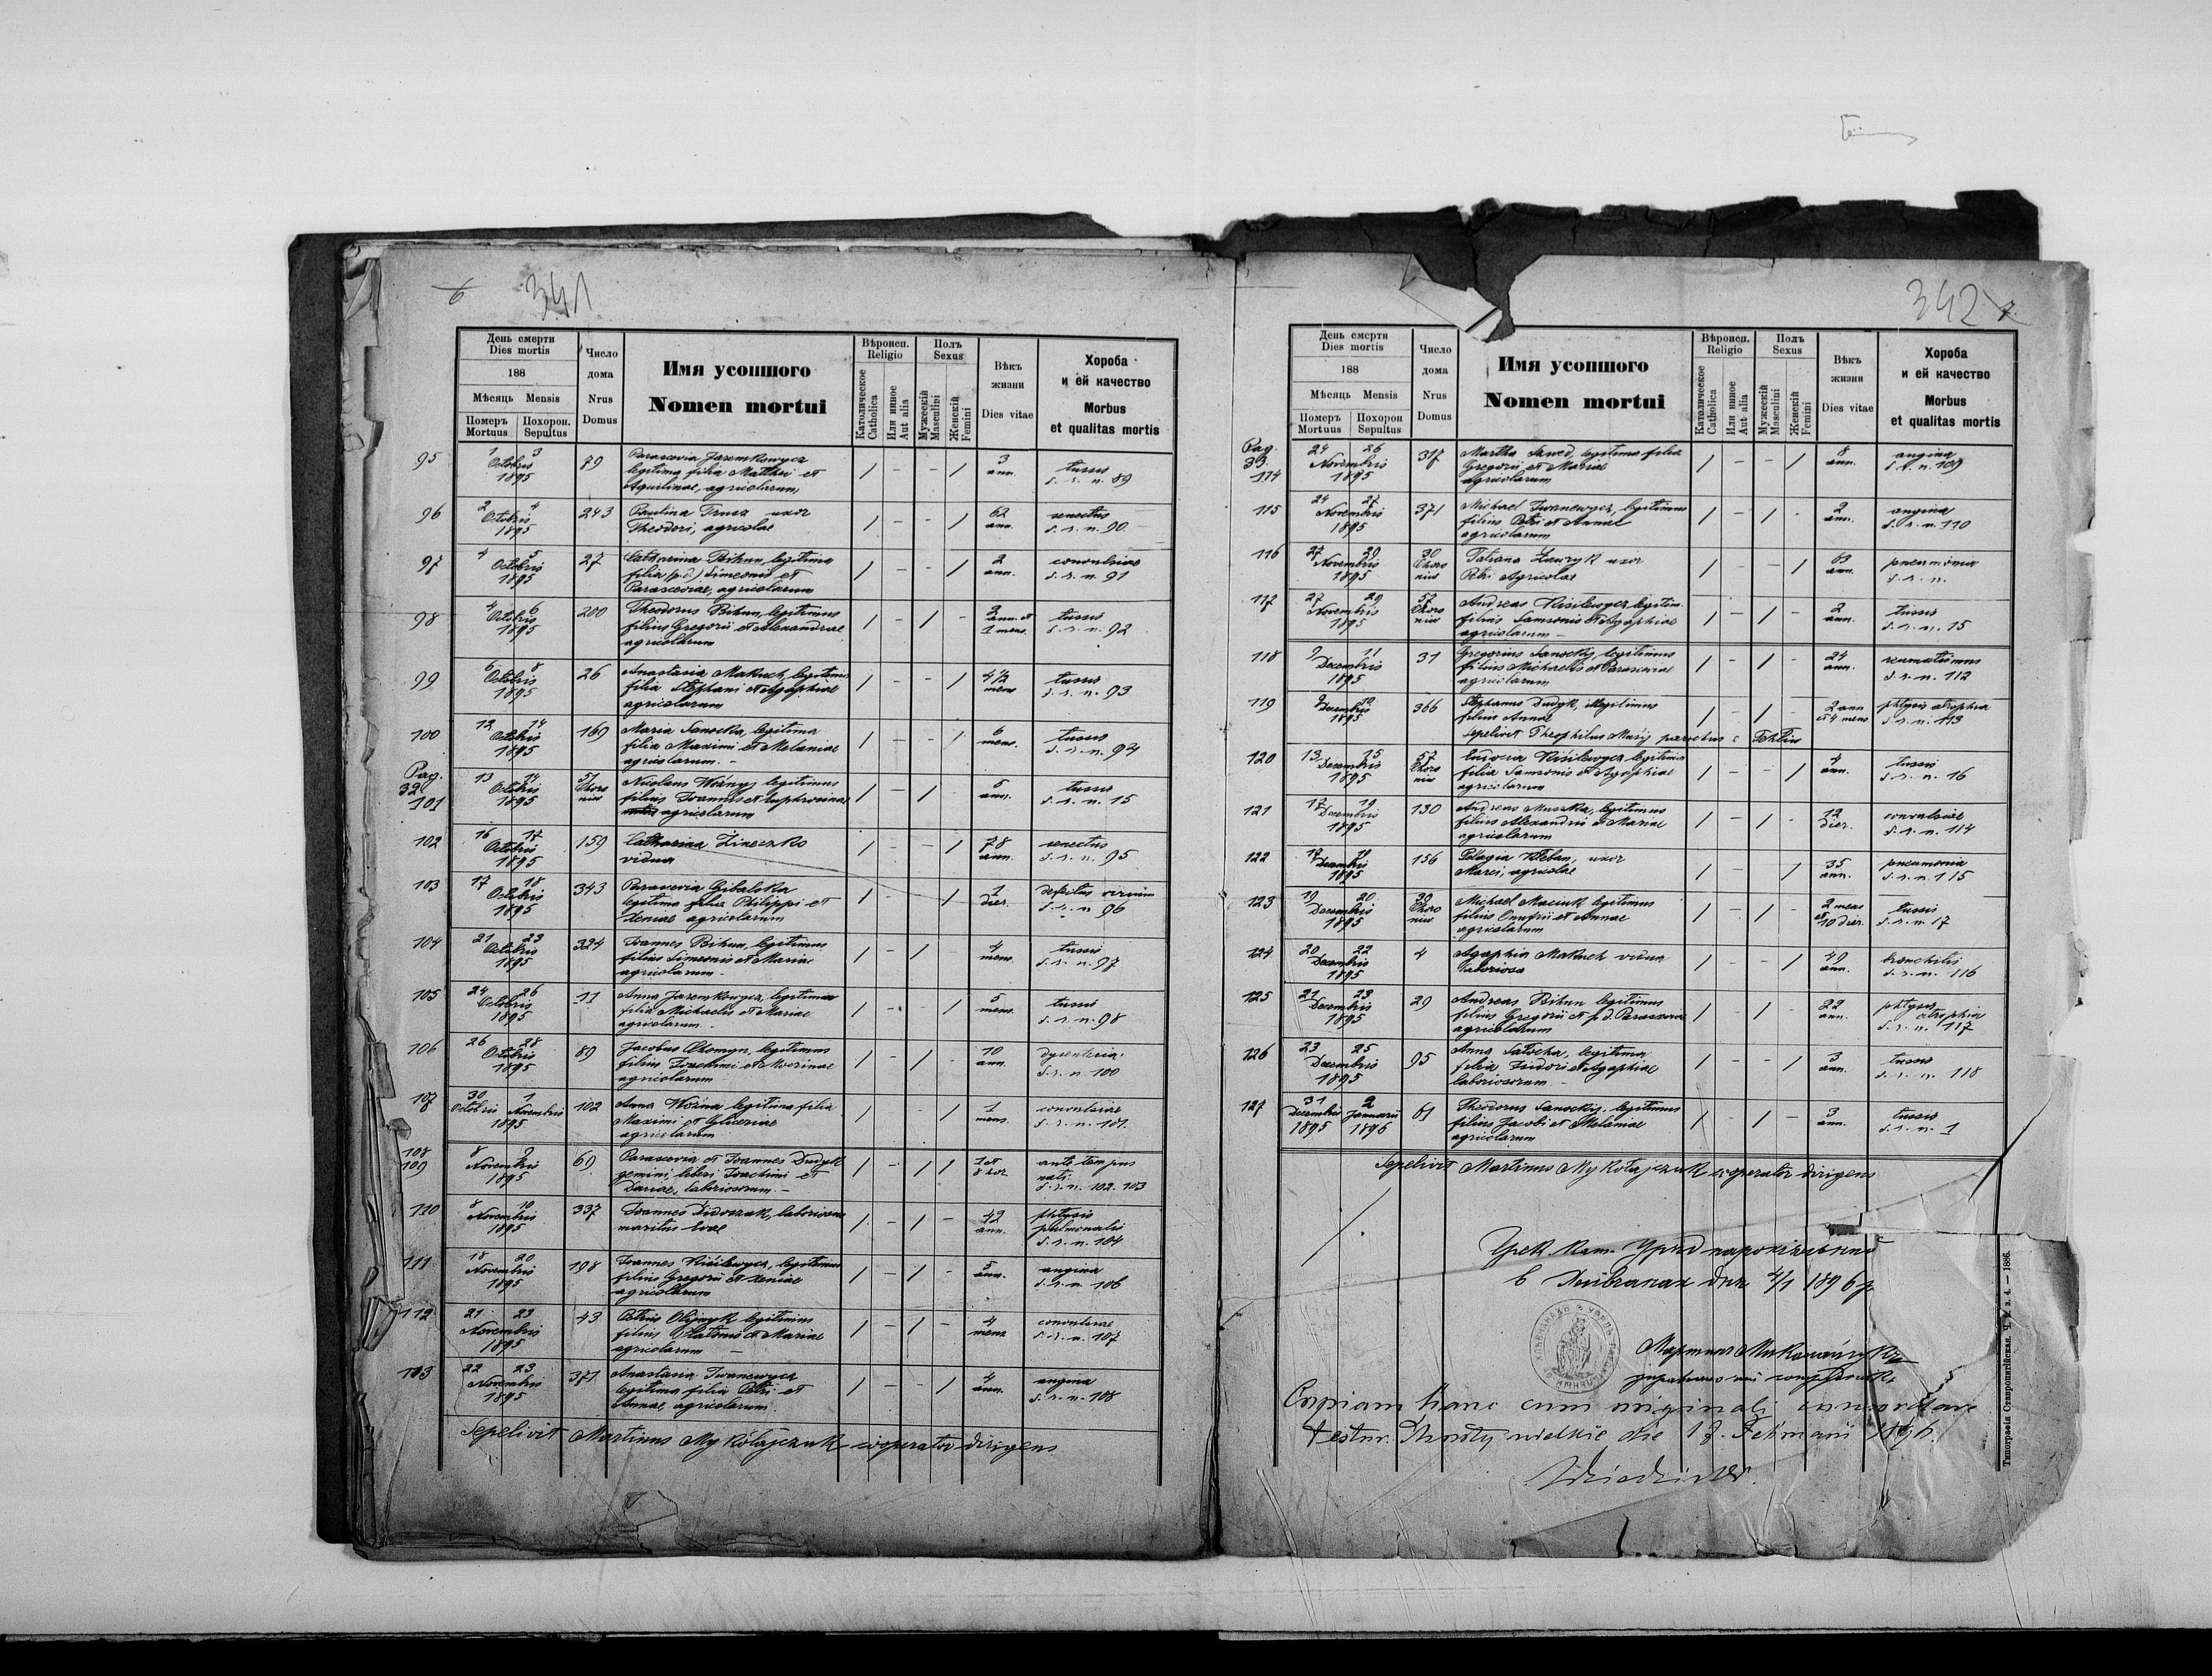 6
341
День смерти
Dies mortis
188
Мѣсяць Mensis
Померъ
Mortuus
Похорон.
Sepultus
Число
дома
Nrus
Domus
Имя усопшого
Nomen mortui
Вѣроисп.
Religio
Католическое
Catholica
Или инное
Aut alia
Полъ
Sexus
Мужескій
Masculini
Женскій
Femini
Вѣкъ
жизни
Dies vitae
Хороба
и ей качество
Morbus
et qualitas mortis
95 1 Octobris 1895 3 79 Parascevia Jaremkowycz
legitima filia Matthei et
Aquilinae, agricolarum
3 ann. tussis
d. s. n. 89
96 2 Octobris 1895 4 243 Paulina Trusz uxor
Theodori, agricolae
62 ann. senectus
d. s. n. 90
97 4 Octobris 1895 5 27 Catharina Bihun, legitima
filia (p. d.) Simeonis et
Parasceviae, agricolarum
2 ann. convulsiae
d. s. n. 91
98 4 Octobris 1895 6 200 Theodorus Bihun, legitimus
filius Gregorii et Alexandrae
agricolarum
2 ann. et 1 mens. tussis
d. s. n. 92
99 6 Octobris 1895 8 26 Anastasia Makuch, legitima
filia Stephani et Agaphiae
agricolarum
4 1/2 mens tussis
d. s. n. 93
100 12 Octobris 1895 14 169 Maria Sanocka, legitima
filia Maximi et Melaniae
agricolarum. -
6 mens. tussis
d. s. n. 94
Pag.
32
101 13 Octobris 1895 14 51 Choro niw Nicolaus Woźnyj legitimus
filius Joannis et Euphrosinae
agricolarum
5 ann. tussis
d. s. n. 15
102 16 Octobris 1895 17 159 Catharina Zineczko
vidua
78 ann. senectus
d. s. n. 95
103 17 Octobris 1895 18 343 Parascevia Gibalska
legitima filia Philippi et
Xeniae agricolarum
1 dier. defectus virium
d. s. n. 96
104 21 Octobris 1895 23 324 Joannes Bihun, legitimus
filius Simeonis et Mariae
agricolarum -
4 mens. tussis
d. s. n. 97
105 24 Octobris 1895 26 11 Anna Jaremkowycz, legitima
filia Michaelis et Mariae
agricolarum -
5 mens. tussis
d. s. n. 98
106 26 Octobris 1895 28 89 Jacobus Chomyn, legitimus
filius Joachimi et
agricolarum
10 ann. dysenteria
d. s. n. 100
107 30 Octobris 1 Novembris 1895 102 Anna Woźna legitima filia
Maximi et Glyceriae
agricolarum
1 mens. convulsiae
d. s. n. 101
108
109 8 Novembris 1895 9 69 Parascevia et Joannes Dudyk
gemini, liberi Joachimi et
Dariae, laboriosorum. -
1 et 8 hor. ante tempus
nati.
d. s. n. 102. 103
110 8 Novembris 1895 10 337 Joannes laboriosus
maritus Evae
42 ann. phtysis
pulmonalis
d. s. n. 104
111 18 Novembris 1895 20 198 Joannes Kisilewycz, legitimus
filius Gregorii et Xeniae
agricolarum
5 ann. angina
d. s. n. 106
112 21 Novembris 1895 23 43 Petrus Olijnyk legitimus
filius Platonis et Mariae
agricolarum -
4 mens convulsiae
d. s. n. 107
113 22 Novembris 1895 23 371 Anastasia Iwanewycz
legitima filia Petri et
Annae, agricolarum
4 ann. angina
d. s. n. 108
Sepelivit Martinus Mykołajczuk cooperator dirigens
342
7.
День смерти
Dies mortis
188
Мѣсяць Mensis
Померъ
Mortuus
Похорон
Sepultus
Число
дома
Nrus
Domus
Имя усопшого
Nomen mortui
Вѣроисп.
Religio
Католическое
Catholica
Или инное
Aut alia
Полъ
Sexus
Мужескій
Masculini
Женскій
Femini
Вѣкъ
жизни
Dies vitae
Хороба
и ей качество
Morbus
et qualitas mortis
Pag.
33.
114 24 Novembris 1895 26 317 Martha legitima filia
Gregorii et Mariae
agricolarum
8 ann. angina
d. s. n. 109
115 24 Novembris 1895 27 371 Michael Iwanewycz, legitimus
filius Petri et Annae
agricolarum
2 ann. angina
d. s. n. 110
116 27 Novembris 1895 29 30 Choro niw Tatiana uxor
Petri Agricolae
63 ann. pneumonia
d. s. n.
117 27 Novembris 1895 29 57 Choro niw Andreas Kisilewycz legitim.
filius Samsonis et Agaphiae
agricolarum -
2 ann. tussis
d. s. n. 15
118 9 Decembris 1895 11 31 Gregorius Sanockij, legitimus
filius Michaelis et Parasceviae
agricolarum
24 ann. reumatismus
d. s. n. 112
119 9 Decembris 1895 10 366 Stephanus Dudyk, illegitimus
filius Annae
2 ann et 4 mens phtysis atrophia
d. s. n. 113
Sepelivit Theophilus parochus
120 13 Decembris 1895 15 57 Choro niw Kisilewycz legitima
filia Samsonis et Agaphiae
agricolarum
4 ann. tussis
d. s. n. 16
121 17 Decembris 1895 19 130 Andreas Muszka, legitimus
filius Alexandri et Mariae
agricolarum
12 dier. convulsiae
d. s. n. 114
122 17 Decembris 1895 19 156 Pelagia Kłeban, uxor
Marci, agricolae
35 ann. pneumonia
d. s. n. 115
123 19 Decembris 1895 20 39 Choro niw Michael Maciuk legitimus
filius Onufrii et Annae
agricolarum
2 mens et 10 dier. tussis
d. s. n. 17
124 20 Decembris 1895 22 4 Agaphia Makuch vidua
laboriosa
49 ann. bronchitis
d. s. n. 116
125 21 Decembris 1895 23 29 Andreas Bihun legitimus
filius Gregorii et p. d. Parasceviae
agricolarum
22 ann. phtysis
atrophia
d. s. n. 117
126 23 Decembris 1895 25 95 Anna legitima
filia Isidori et Agaphiae
laboriosorum -
3 ann. tussis
d. s. n. 118
127 31 Decembris 1895 2 Januarii 1896 61 Theodorus Sanockij legitimus
filius Jacobi et Melaniae
agricolarum
3 ann. tussis
d. s. n. 1
Sepelivit Martinus Mykołajczuk cooperator dirigens
Грек. Кат. Уряд парохіяльный
в дня 4/1 1896 р.
Copiam hanc cum originali concordare
testor. Mosty wielkie die 17. Februarii 1896.
Типографія Ставропигійская. Ч. 3. 4. — 1886.